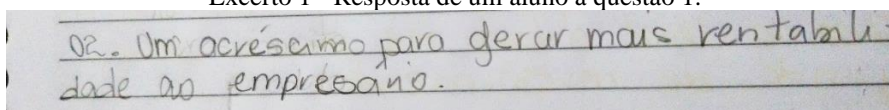 Excerto 1 - Resposta de um aluno à questão 1.
02. Um acréscimo para gerar mais rentabili
dade ao empresário.